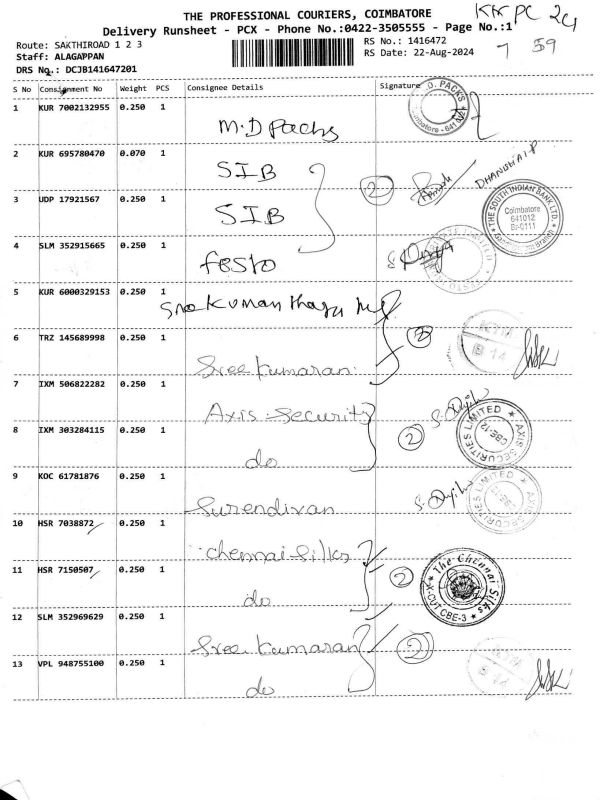 THE PROFESSIONAL COURIERS, COIMBATORE
Delivery Runsheet - PCX - Phone No.:0422-3505555 - Page No.:1
Route: SAKTHIROAD 1 2 3
RS No.: 1416472
59
Staff: ALAGAPPAN
RS Date: 22-Aug-2024
DRS No.: DCJB141647201
S No Consignment No Weight PCS Consignee Details Signature
1 KUR 7002132955 0.250 1 M.D Packs
D. PACKS
2 KUR 695780470 0.070 1 SIB
2
3 UDP 17921567 0.250 1 SIB
THE SOUTH INDIAN BANK LTD.
Coimbatore
641012
4 SLM 352915665 0.250 1 festo
5 KUR 6000329153 0.250 1 Sree Kumaran
6 TRZ 145689998 0.250 1 Sree kumaran
7 IXM 506822282 0.250 1 Axis Security
2
8 IXM 303284115 0.250 1 do
AXIS SECURITIES LIMITED
CBE-12
9 KOC 61781876 0.250 1 Surendiran
10 HSR 7038872 0.250 1 Chennai Silks
2
11 HSR 7150507 0.250 1 do
The Chennai Silks
X-CUT CBE-3
12 SLM 352969629 0.250 1 Sree kumaran
2
13 VPL 948755100 0.250 1 do